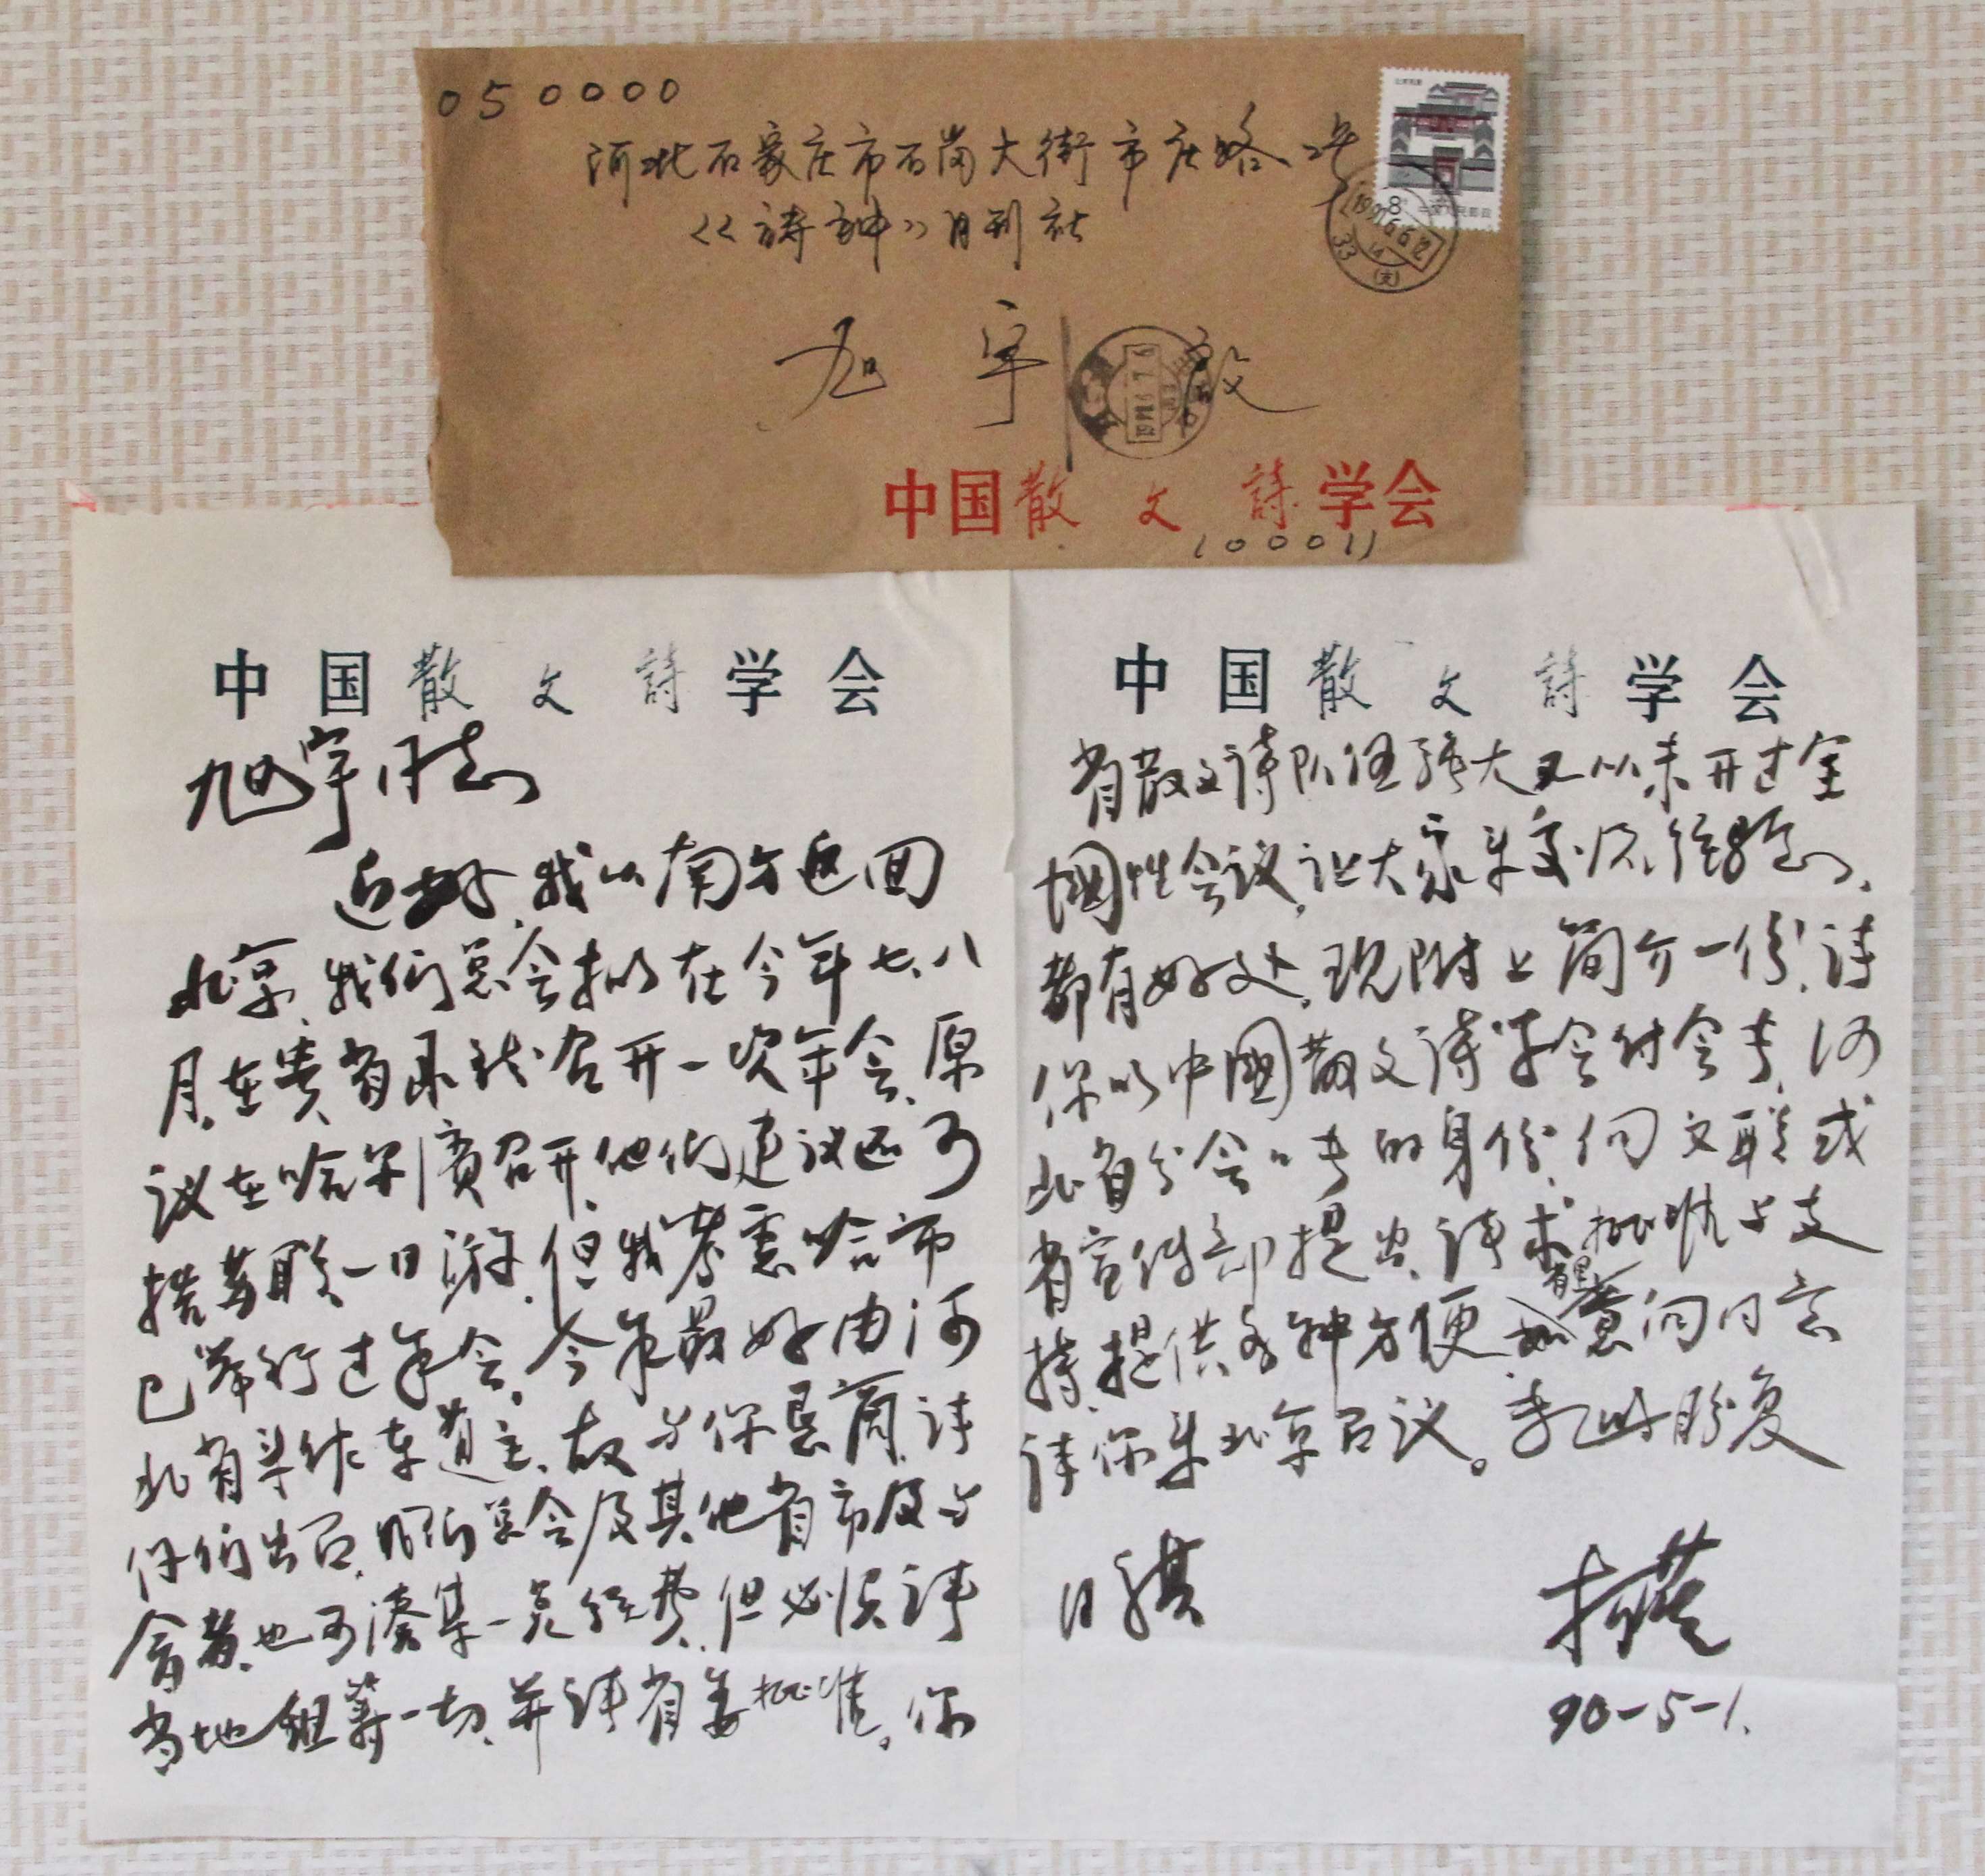 050000
河北石家庄市石岗大街市庄路2号
《詩神》月刊社
旭宇 收
中国散文詩学会
100011
8
中国散文詩学会
旭宇同志
近好,我从南方返回
北京,我们总会拟在今年七、八
月,在贵省承德召开一次年会,原
议在哈尔濱召开,他们建议还可
搭苏联一日游,但我考虑哈市
已举行过年会,今年最好由河
北省来作东道主,故与你恳商,请
你们出面,明所总会及其他省市及与
会者,也可凑集一点经费,但必须请
当地组筹一切,并请省委批准。你
中国散文詩学会
省散文诗队伍强大又从未开过全
國性会议,让大家来交流经验,
都有好处,现附上简介一份,请
你以中國散文诗学会付会长,河
北省分会会长的身份,向文联或
省宣传部提出,请求批准与支
持,提供各种方便,如有意向同意
请你来北京面议。专此盼复
日祺
柯蓝
90-5-1.